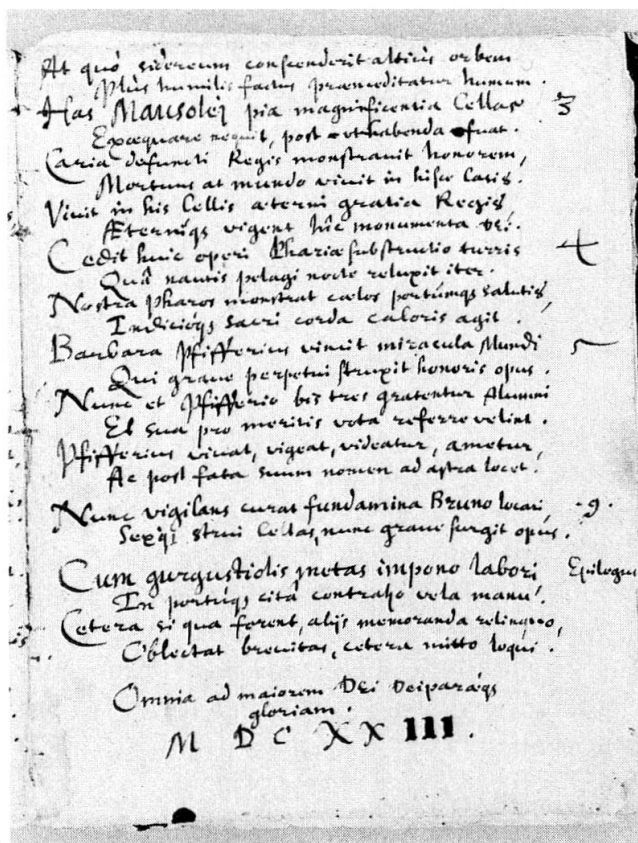 At quò sidereum conscenderit altiùs orbem
Plùs humilis factus praemeditatur humum.
Has Mausolej pia magnificentia Cellas 3
Exaequare nequit, post habenda fuat.
Caria defuncti Regis monstravit honorem,
Mortuus at mundo vivit in hisce Casis.
Vivit in his Cellis aeterni gratia Regis
Æterniqs vigent hîc monumenta DEI.
Cedit huic operi Phariae substructio turris 4
Quâ nautis pelagi nocte reluxit iter.
Nostra Pharos monstrat caelos portúmqs salutis,
Indicioqs sacri corda caloris agit.
Barbara Pfifferius vincit miracula Mundi 5
Qui grave perpetui struxit honoris opus.
Nunc et Pfifferio bis tres gratentur Alumni
Et sua pro meritis vota referre velint.
Pfifferius vivat, vigeat, videatur, ametur,
Ac post fata suum nomen ad astra locet.
Nunc vigilans curat fundamina Bruno locari, .9.
Sexqi strui Cellas, nunc grave surgit opus.
Cum gurgustiolis metas impono labori Epilogus
In portuqs citâ contraho vela manu.
Cetera si qua forent, alijs memoranda relinquo,
Oblectat brevitas, cetera mitto loqui.
Omnia ad maiorem DEi Deiparaeqs
gloriam.
M D C XX III.